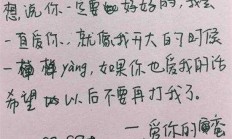 想说你一定要好好的,我会
一直爱你..就像我开大的时候
一样yàng,如果你也爱我的话
希望以后不要再打我了。
一爱你的蛮